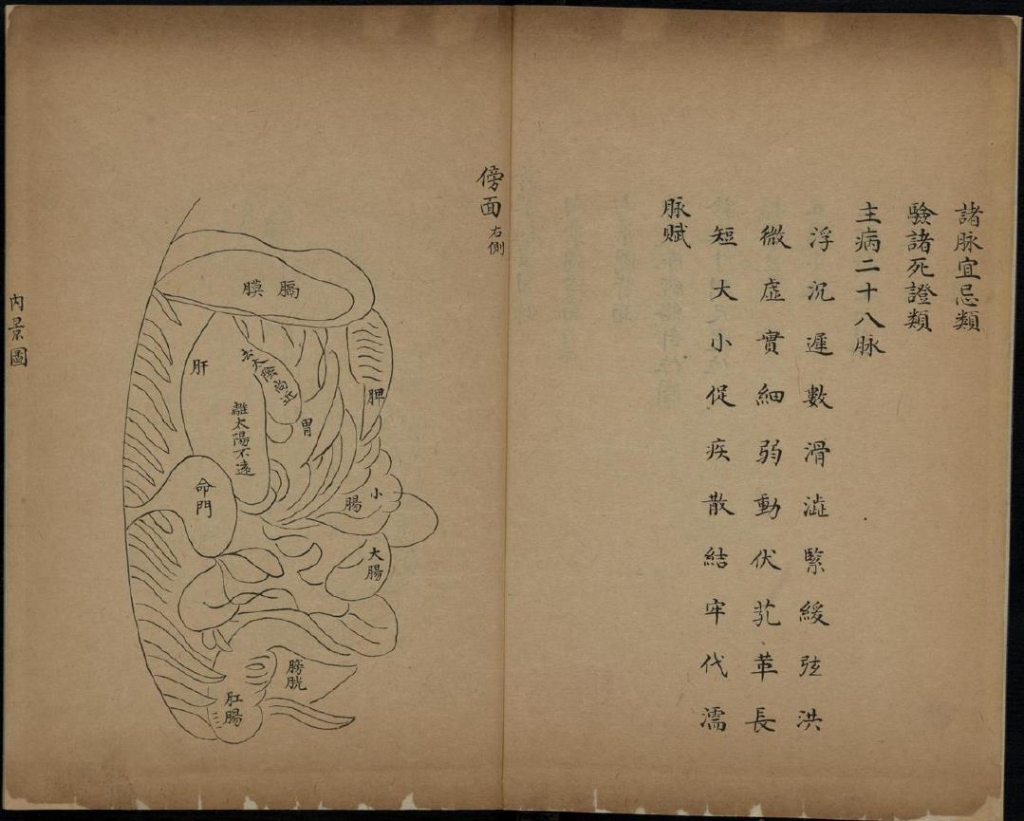 諸脉宜忌類
驗諸死證類
主病二十八脉
浮沉遲數滑澁緊緩弦洪
微虛實細弱動伏芤革長
短大小促疾散結牢代濡
脉賦
傍面 右側
膈膜
脾
肝
去太陰尚近
離太陽不遠
胃
小腸
命門
大腸
膀胱
肛腸
內景圖